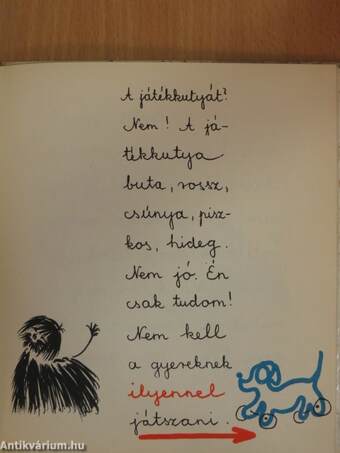 A játékkutyát?
Nem! A já-
tékkutya
buta, rossz,
csúnya, pisz-
kos, hideg.
Nem jó. Én
csak tudom!
Nem kell
a gyereknek
ilyennel
játszani.
Antikvárium.hu
antikvarium.hu